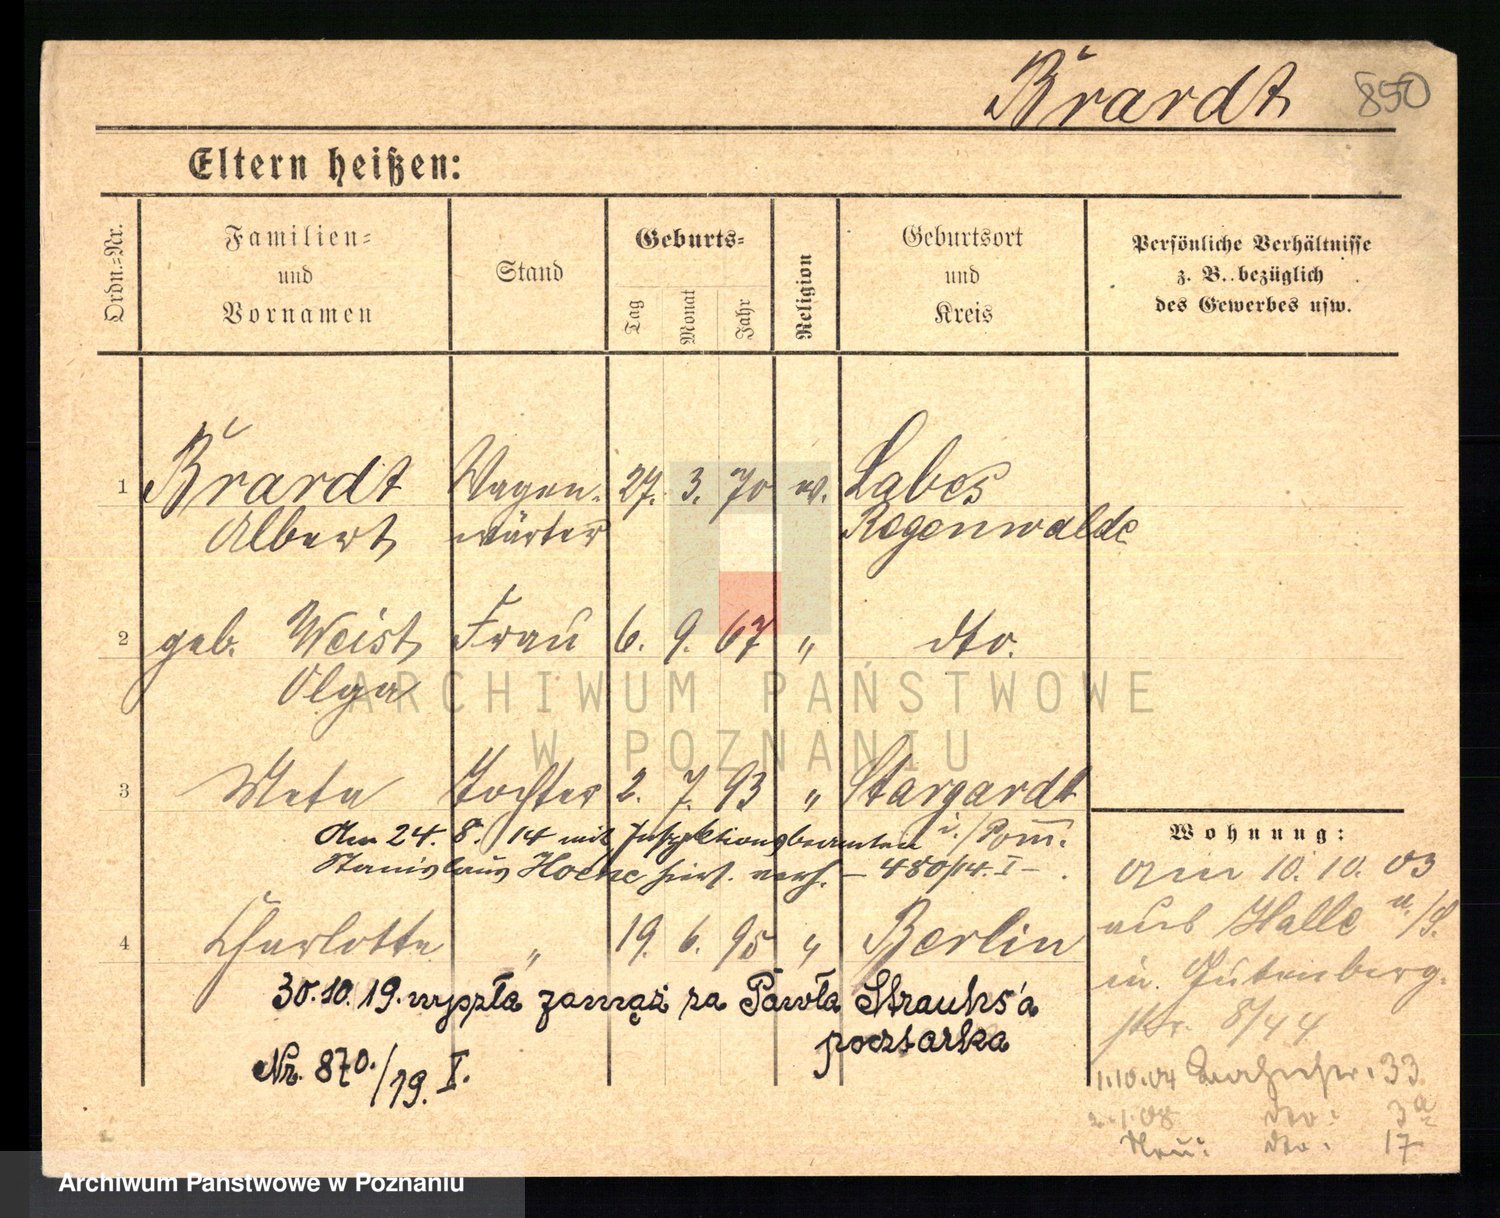 Brardt 850
Eltern heißen:
Ordn.-Nr.
Familien-
und
Vornamen
Stand
Geburts-
Tag
Monat
Jahr
Religion
Geburtsort
und
Kreis
Persönliche Verhältnisse
z. B. bezüglich
des Gewerbes usw.
1 Brardt Wagen- 27. 3. 70 ev. Labes
Albert wärter Regenwalde
2 geb. Weist Frau 6. 9. 67 " dto.
Olga
ARCHIWUM PAŃSTWOWE
W POZNANIU
3 Meta Tochter 2. 7. 93 " Stargardt
Am 24. 8. 14 mit Inspektionsbeamten i./Pom.
Stanislaus hier verh. – 480/14. I – .
4 Charlotte " 19. 6. 95 " Berlin
30.10.19. wyszła zamąż za Pawła Strauhs'a
pocztarka
Nr. 870./19. I.
Wohnung:
Am 10. 10. 03
aus Halle a./S.
in Gutenberg-
str. 8/44
1.10.04 33
2.1.08 dto: 3a
Neu: dto: 17
Archiwum Państwowe w Poznaniu